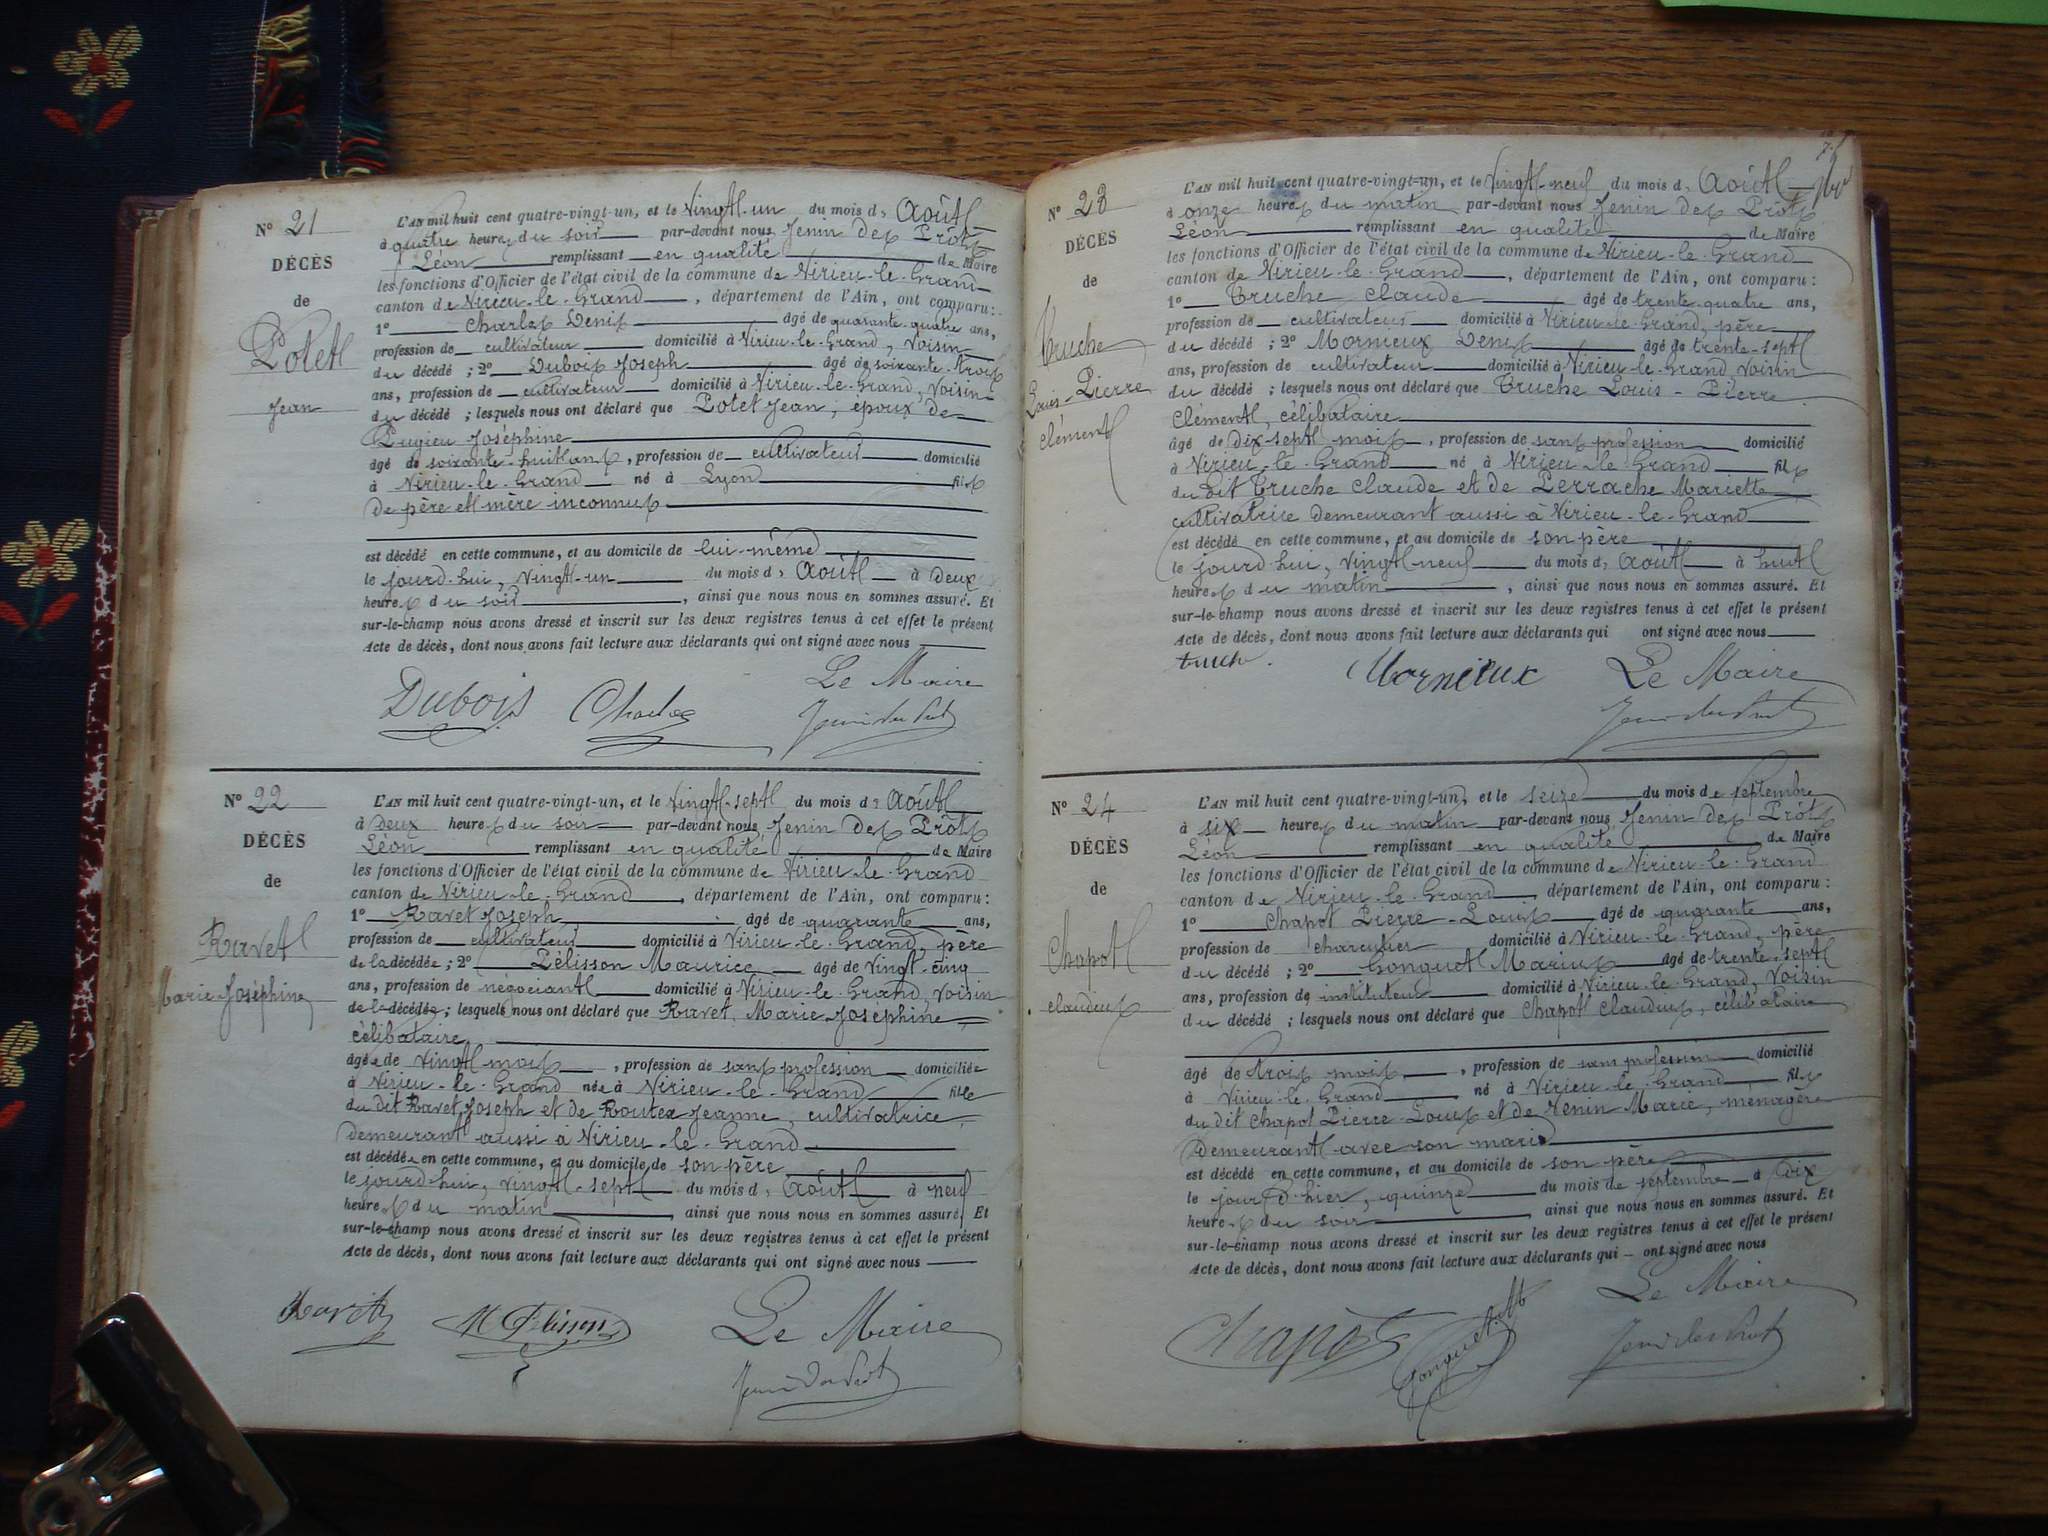 N° 21
DÉCÈS
de
Potet
Jean
L'AN mil huit cent quatre-vingt-un, et le Vingt-un du mois d' Août
à quatre heures du soir par-devant nous Jenin des Prôts
Léon remplissant en qualité de Maire
les fonctions d'Officier de l'état civil de la commune de Virieu-le-Grand
canton de Virieu-le-Grand, département de l'Ain, ont comparu :
1° Charles Denis âgé de quarante-quatre ans,
profession de cultivateur domicilié à Virieu-le-Grand, Voisin
du décédé ; 2° Dubois Joseph âgé de soixante-trois
ans, profession de cultivateur domicilié à Virieu-le-Grand, Voisin
du décédé ; lesquels nous ont déclaré que Potet Jean, époux de
Pugieu Joséphine
âgé de soixante-huit ans, profession de cultivateur domicilié
à Virieu-le-Grand né à Lyon fils
de père et mère inconnus
est décédé en cette commune, et au domicile de lui-même
le jourd'hui, vingt-un du mois d' Août à Deux
heures du soir, ainsi que nous nous en sommes assuré. Et
sur-le-champ nous avons dressé et inscrit sur les deux registres tenus à cet effet le présent
Acte de décès, dont nous avons fait lecture aux déclarants qui ont signé avec nous
Le Maire
Dubois Charles
N° 22
DÉCÈS
de
Ravet
Marie Joséphine
L'AN mil huit cent quatre-vingt-un, et le Vingt-sept du mois d' Août
à Deux heures du soir par-devant nous Jenin des Prôts
Léon remplissant en qualité de Maire
les fonctions d'Officier de l'état civil de la commune de Virieu-le-Grand
canton de Virieu-le-Grand, département de l'Ain, ont comparu :
1° Ravet Joseph âgé de quarante ans,
profession de cultivateur domicilié à Virieu-le-Grand, père
de la décédée ; 2° Pélisson Maurice âgé de Vingt-cinq
ans, profession de négociant domicilié à Virieu-le-Grand, Voisin
de la décédée ; lesquels nous ont déclaré que Ravet, Marie Joséphine,
célibataire
âgée de Vingt mois, profession de sans profession domiciliée
à Virieu-le-Grand née à Virieu-le-Grand fille
du dit Ravet Joseph et de Jeanne, cultivatrice,
demeurant aussi à Virieu-le-Grand
est décédée en cette commune, et au domicile de son père
le jourd'hui, vingt-sept du mois d' Août à neuf
heures du matin, ainsi que nous nous en sommes assuré. Et
sur-le-champ nous avons dressé et inscrit sur les deux registres tenus à cet effet le présent
Acte de décès, dont nous avons fait lecture aux déclarants qui ont signé avec nous
Ravet M Pélisson Le Maire
N° 23
DÉCÈS
de
Truche
Louis-Pierre
Clément
L'AN mil huit cent quatre-vingt-un, et le Vingt-neuf du mois d' Août
à onze heures du matin par-devant nous Jenin des Prôts
Léon remplissant en qualité de Maire
les fonctions d'Officier de l'état civil de la commune de Virieu-le-Grand
canton de Virieu-le-Grand, département de l'Ain, ont comparu :
1° Truche Claude âgé de trente-quatre ans,
profession de cultivateur domicilié à Virieu-le-Grand, père
du décédé ; 2° Mornieux Denis âgé de trente-sept
ans, profession de cultivateur domicilié à Virieu-le-Grand Voisin
du décédé ; lesquels nous ont déclaré que Truche Louis-Pierre
Clément, célibataire
âgé de dix-sept mois, profession de sans profession domicilié
à Virieu-le-Grand né à Virieu-le-Grand fils
du dit Truche Claude et de Perrache Mariette
cultivatrice demeurant aussi à Virieu-le-Grand
est décédé en cette commune, et au domicile de son père
le jourd'hui, Vingt-neuf du mois d' Août à huit
heures du matin, ainsi que nous nous en sommes assuré. Et
sur-le-champ nous avons dressé et inscrit sur les deux registres tenus à cet effet le présent
Acte de décès, dont nous avons fait lecture aux déclarants qui ont signé avec nous
truche. Mornieux Le Maire
N° 24
DÉCÈS
de
Chapot
Claudius
L'AN mil huit cent quatre-vingt-un, et le seize du mois de septembre
à six heures du matin par-devant nous Jenin des Prôts
Léon remplissant en qualité de Maire
les fonctions d'Officier de l'état civil de la commune de Virieu-le-Grand
canton de Virieu-le-Grand, département de l'Ain, ont comparu :
1° Chapot Pierre-Louis âgé de quarante ans,
profession de charcutier domicilié à Virieu-le-Grand, père
du décédé ; 2° Gonguet Marius âgé de trente-sept
ans, profession de instituteur domicilié à Virieu-le-Grand, Voisin
du décédé ; lesquels nous ont déclaré que Chapot Claudius, célibataire
âgé de trois mois, profession de sans profession domicilié
à Virieu-le-Grand né à Virieu-le-Grand fils
du dit Chapot Pierre-Louis et de Marie, ménagère
demeurant avec son mari
est décédé en cette commune, et au domicile de son père
le jour d'hier, quinze du mois de septembre à dix
heures du soir, ainsi que nous nous en sommes assuré. Et
sur-le-champ nous avons dressé et inscrit sur les deux registres tenus à cet effet le présent
Acte de décès, dont nous avons fait lecture aux déclarants qui ont signé avec nous
Chapot Gonguet Le Maire